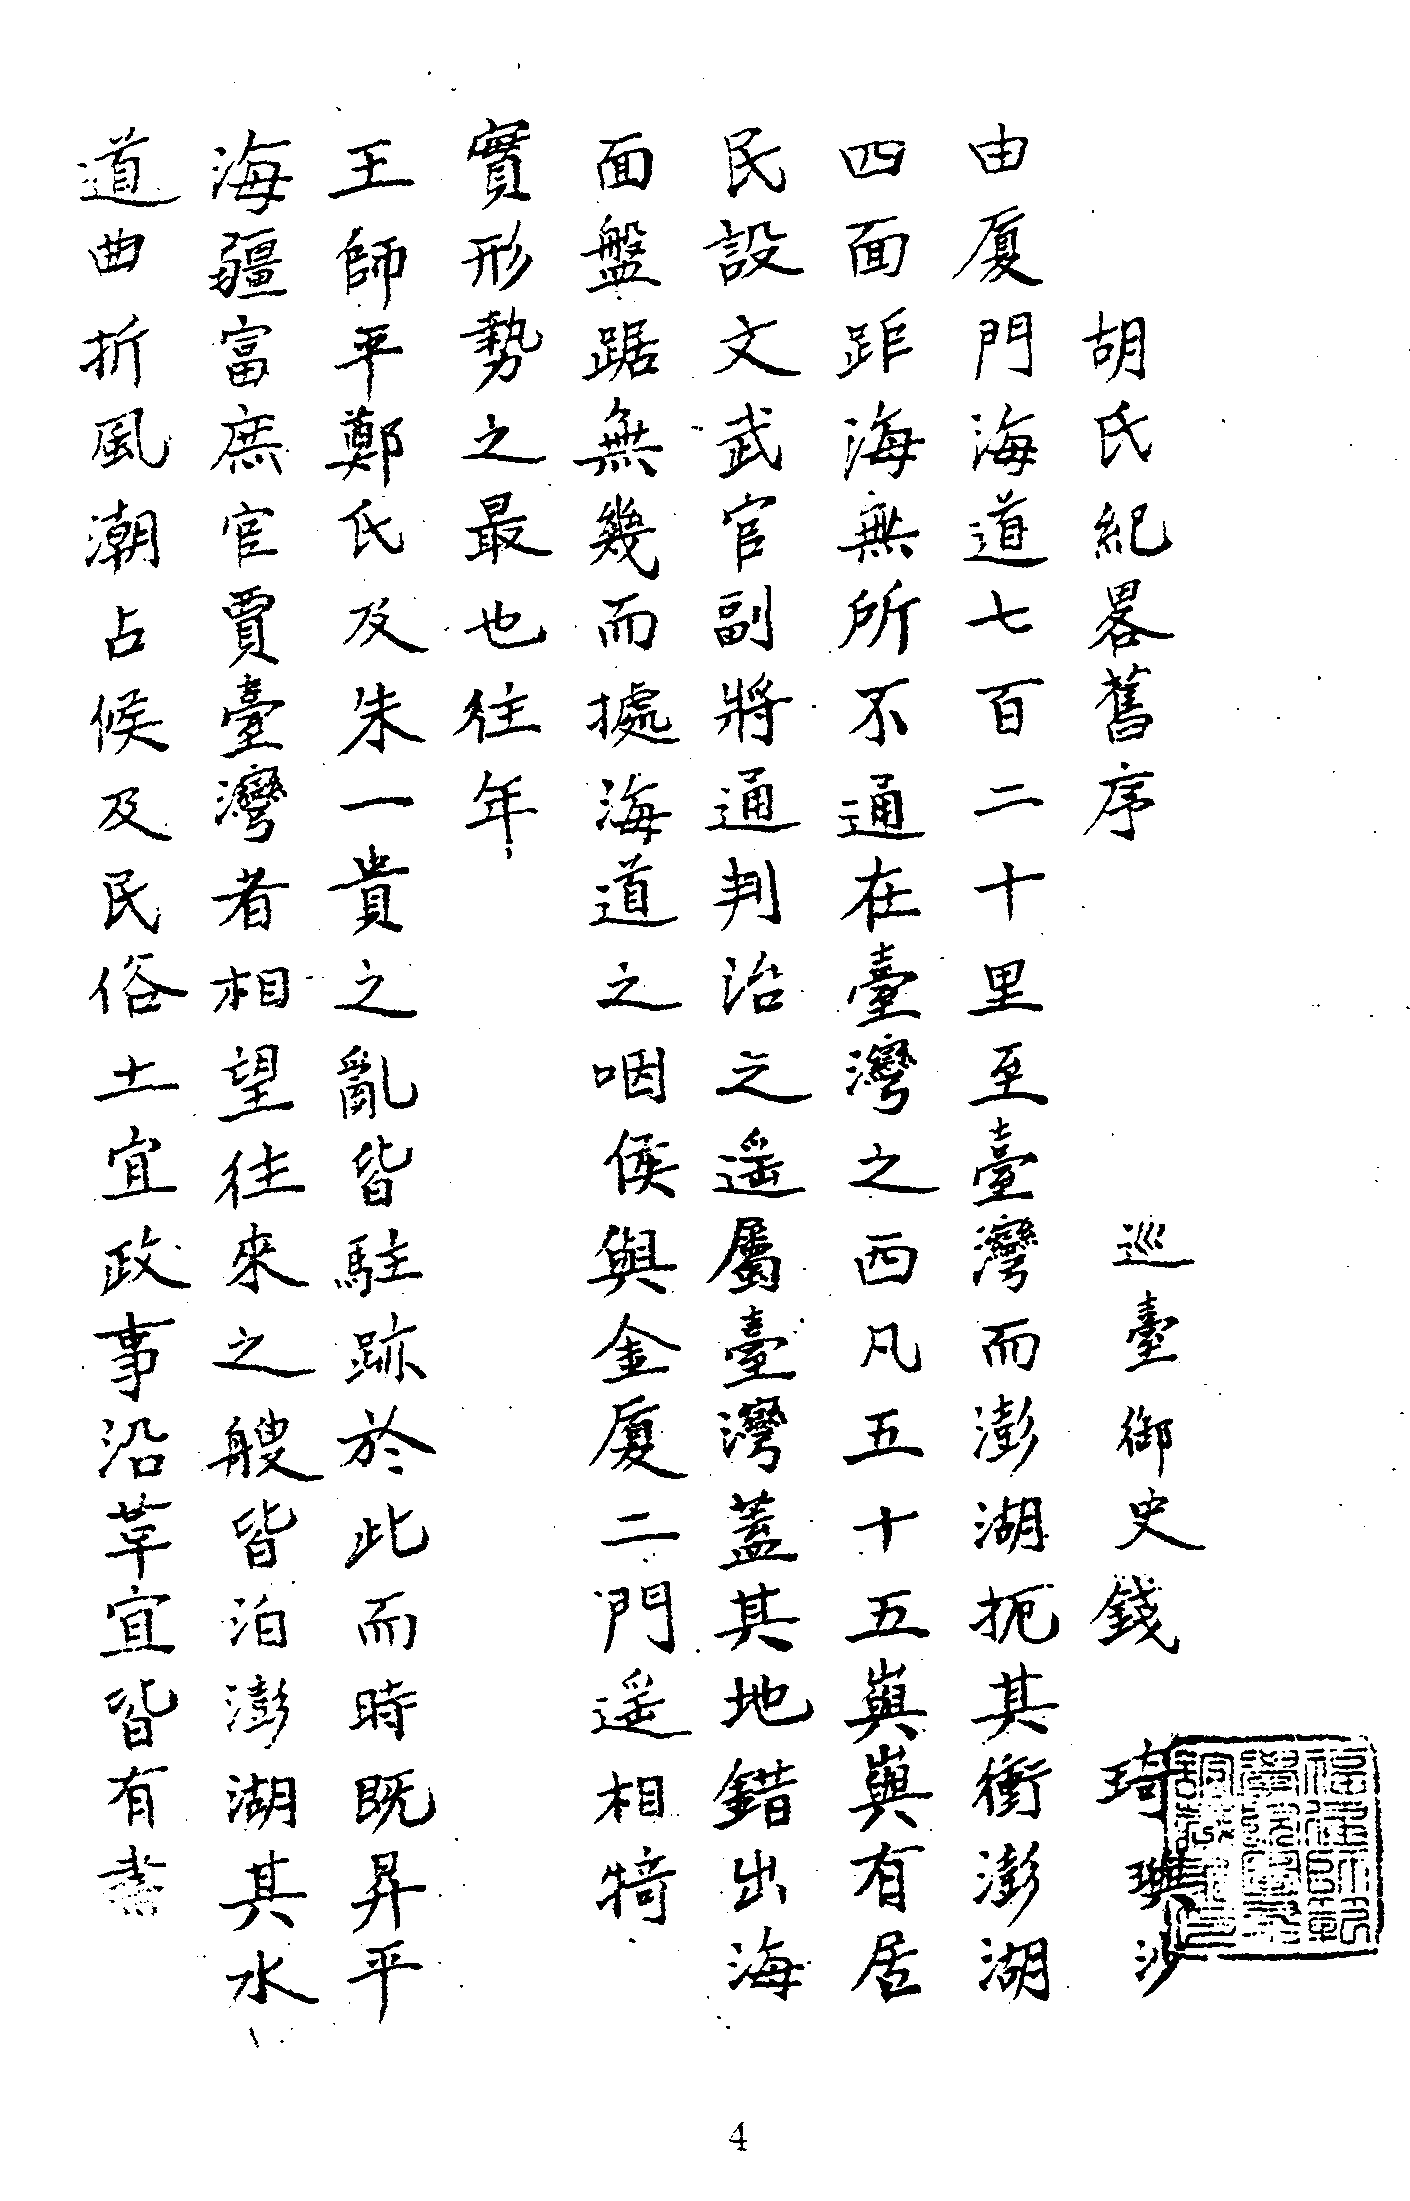 胡氏紀畧舊序
巡臺御史錢　琦璵沙
由厦門海道七百二十里至臺灣而澎湖扼其衝澎湖
四面距海無所不通在臺灣之西凡五十五嶼嶼有居
民設文武官副將通判治之遥屬臺灣蓋其地錯出海
面盤踞無幾而據海道之咽侯與金厦二門遥相犄
實形勢之最也往年
王師平鄭氏及朱一貴之亂皆駐跡於此而時既昇平
海疆富庶官賈臺灣者相望往來之艘皆泊澎湖其水
道曲折風潮占候及民俗土宜政事沿革宜皆有
4